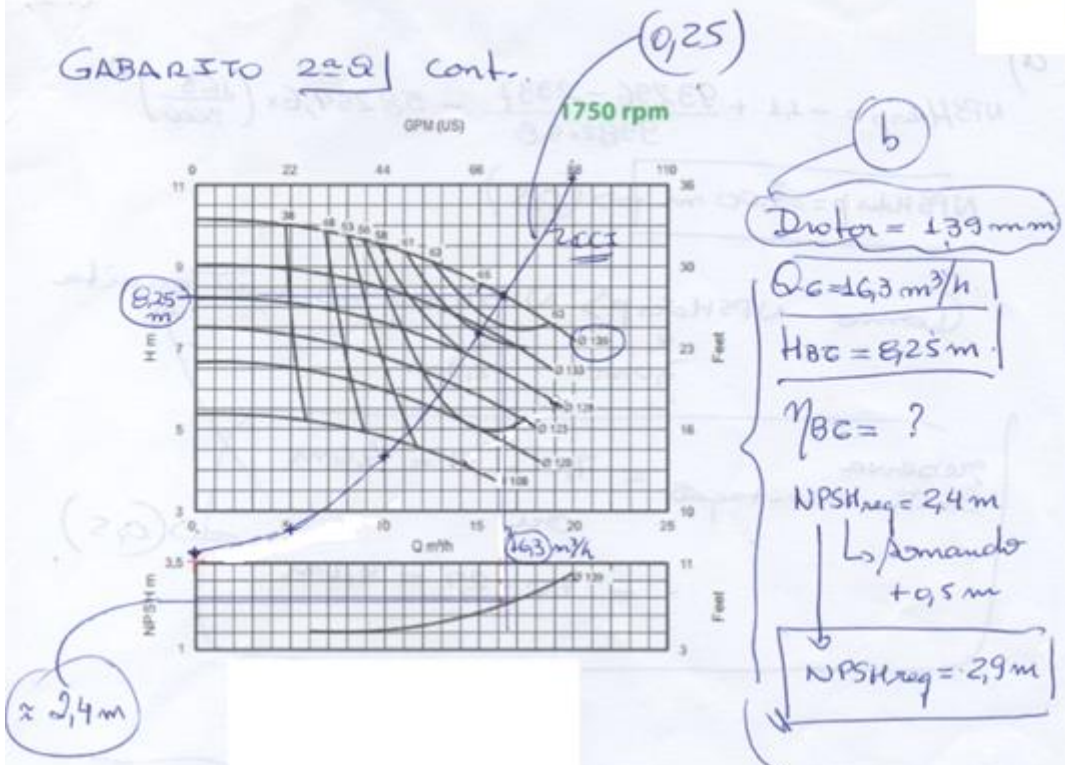 GABARITO 2ª Q cont.
(0,25)
1750 rpm
GPM (US)
0 22 44 66 88 110
11 9 7 5 3
H m
36 30 23 16 10
Feet
38 48 53 56 58 61 63 65 63
CCI
Ø 139
Ø 133
Ø 128
Ø 123
Ø 120
108
8,25 m
0 5 10 15 20 25
Q m³/h
16,3 m³/h
3,5 1
NPSH m
11 3
Feet
Ø 139
≈ 2,4 m
b
Drotor = 139 mm
Qτ = 16,3 m³/h
HBτ = 8,25 m
ηBτ = ?
NPSHreq = 2,4 m
↳ somando
+0,5 m
NPSHreq = 2,9 m
(0,5)